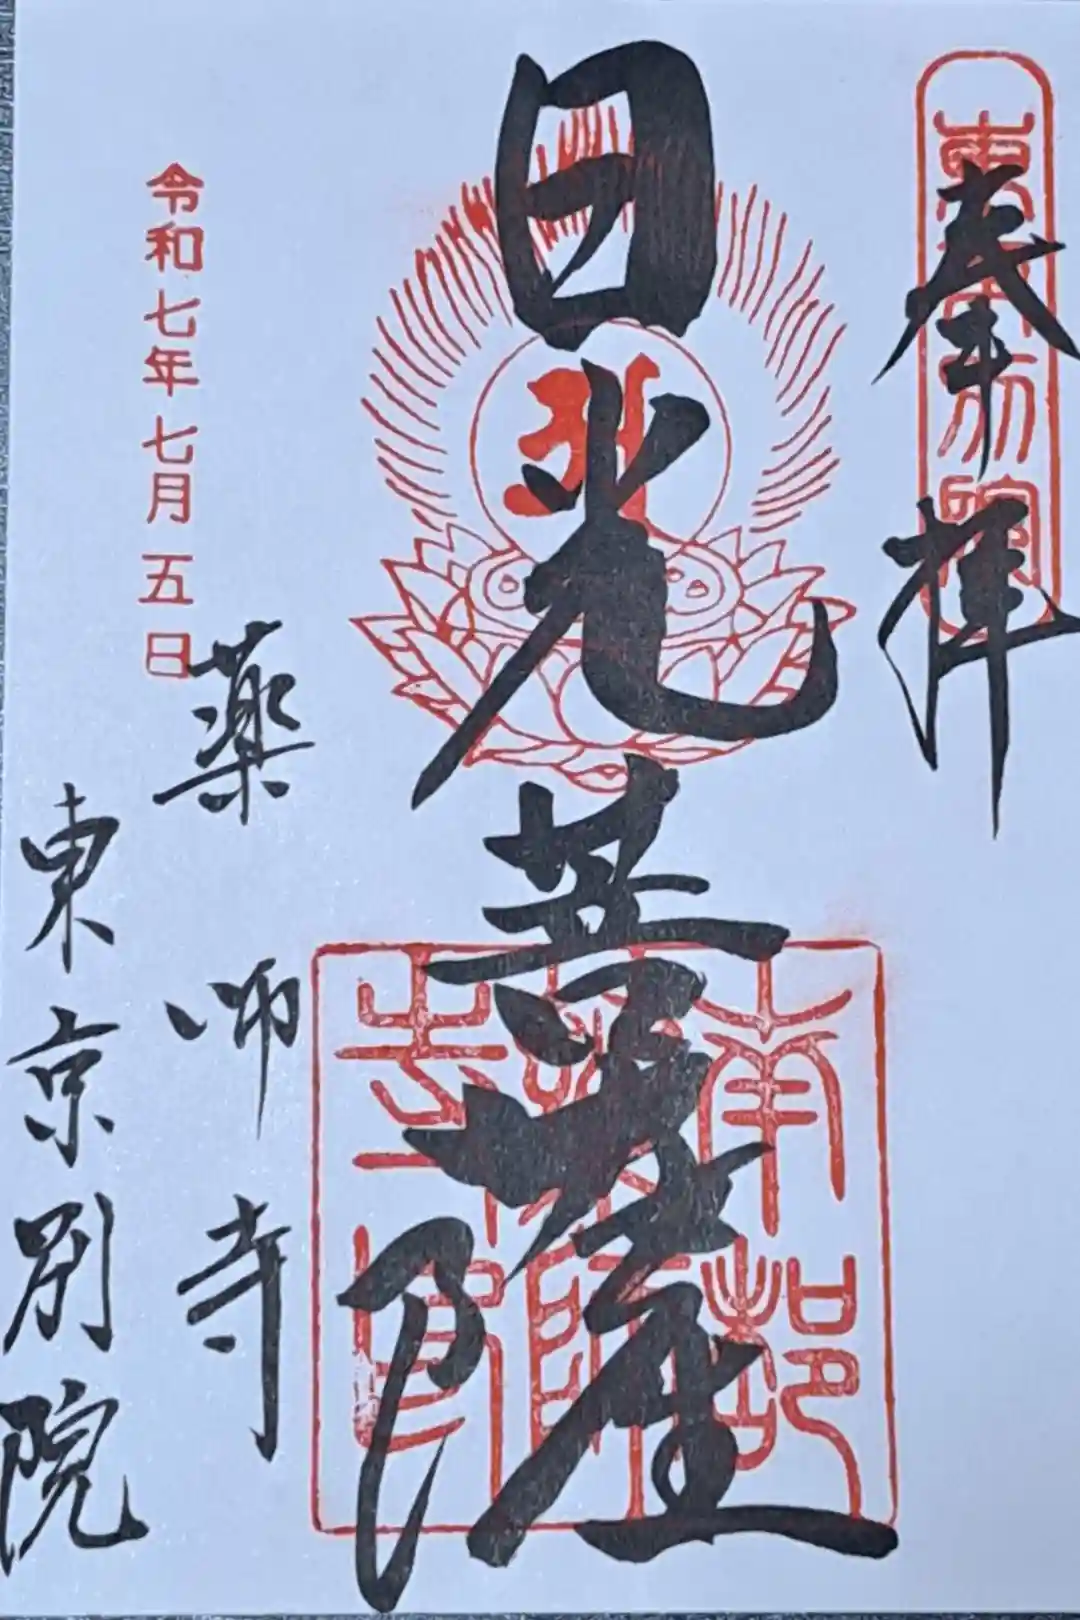 奉拝
東京別院
日光菩薩
南都薬師寺
令和七年七月五日
薬師寺
東京別院